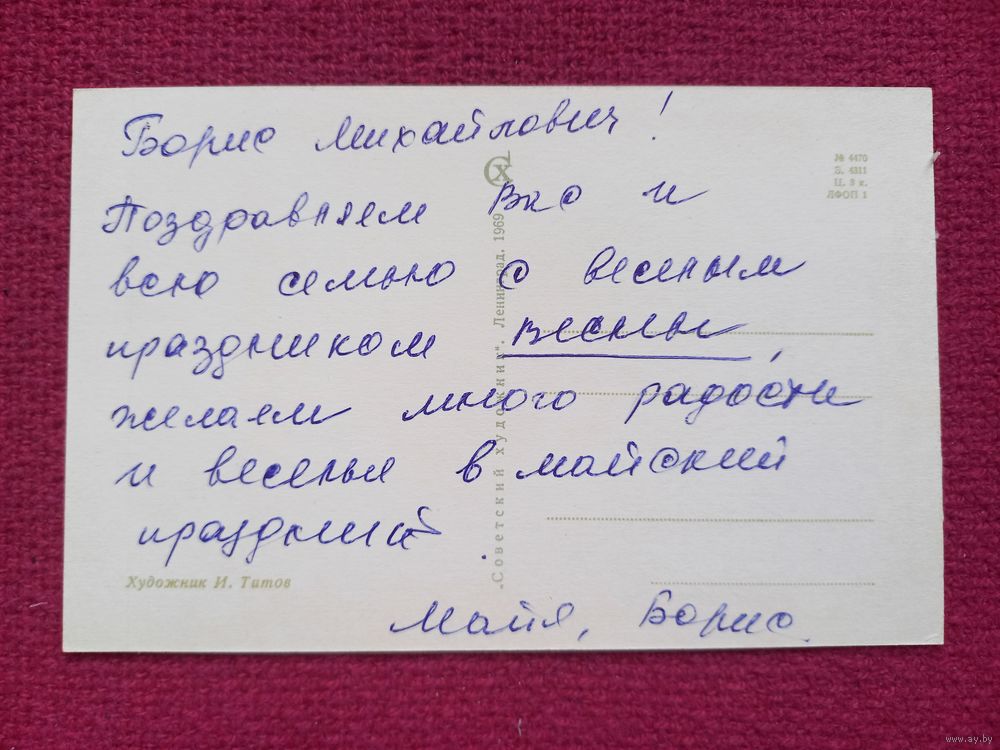 Борис Михайлович!
Поздравляем Вас и
всю семью с веселым
праздником весны,
желаем много радости
и веселья в майский
праздник.
Майя, Борис.
Художник И. Титов
„Советский художник“. Ленинград. 1969
СХ
№ 4470
З. 4311
Ц. 3 к.
ЛФОП 1
www.ay.by